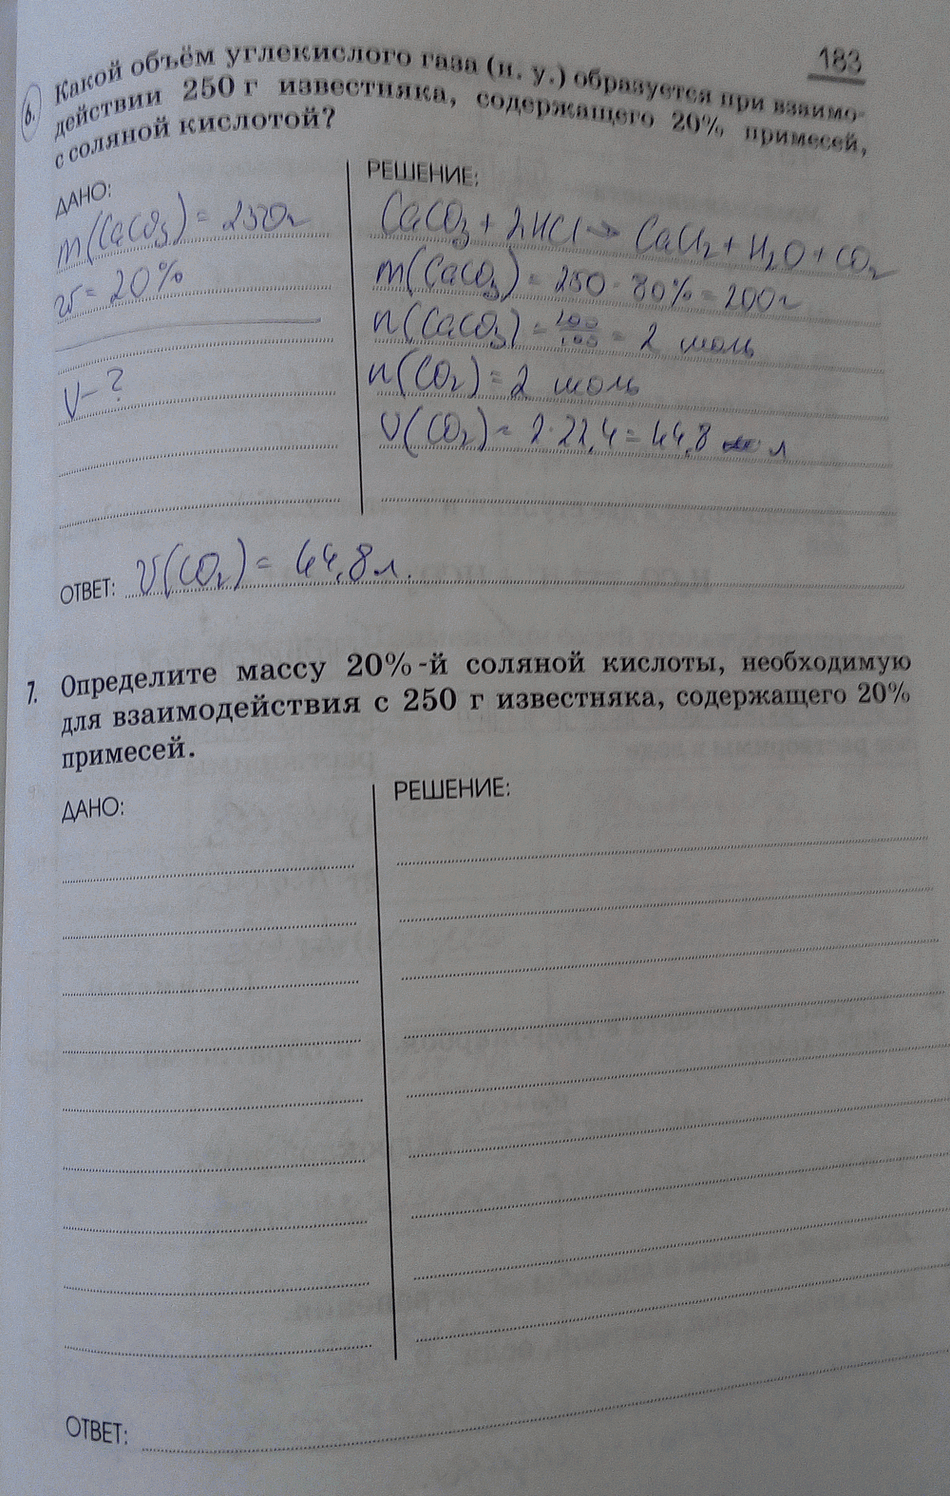 183
6. Какой объём углекислого газа (н. у.) образуется при взаимо-
действии 250 г известняка, содержащего 20% примесей,
с соляной кислотой?
ДАНО:
m(CaCO₃) = 250г
w = 20%
V - ?
РЕШЕНИЕ:
CaCO₃ + 2HCl → CaCl₂ + H₂O + CO₂
m(CaCO₃) = 250 · 80% = 200г
n(CaCO₃) = 200/100 = 2 моль
n(CO₂) = 2 моль
V(CO₂) = 2·22,4 = 44,8 л
ОТВЕТ: V(CO₂) = 44,8л.
7. Определите массу 20%-й соляной кислоты, необходимую
для взаимодействия с 250 г известняка, содержащего 20%
примесей.
ДАНО:
РЕШЕНИЕ:
ОТВЕТ: